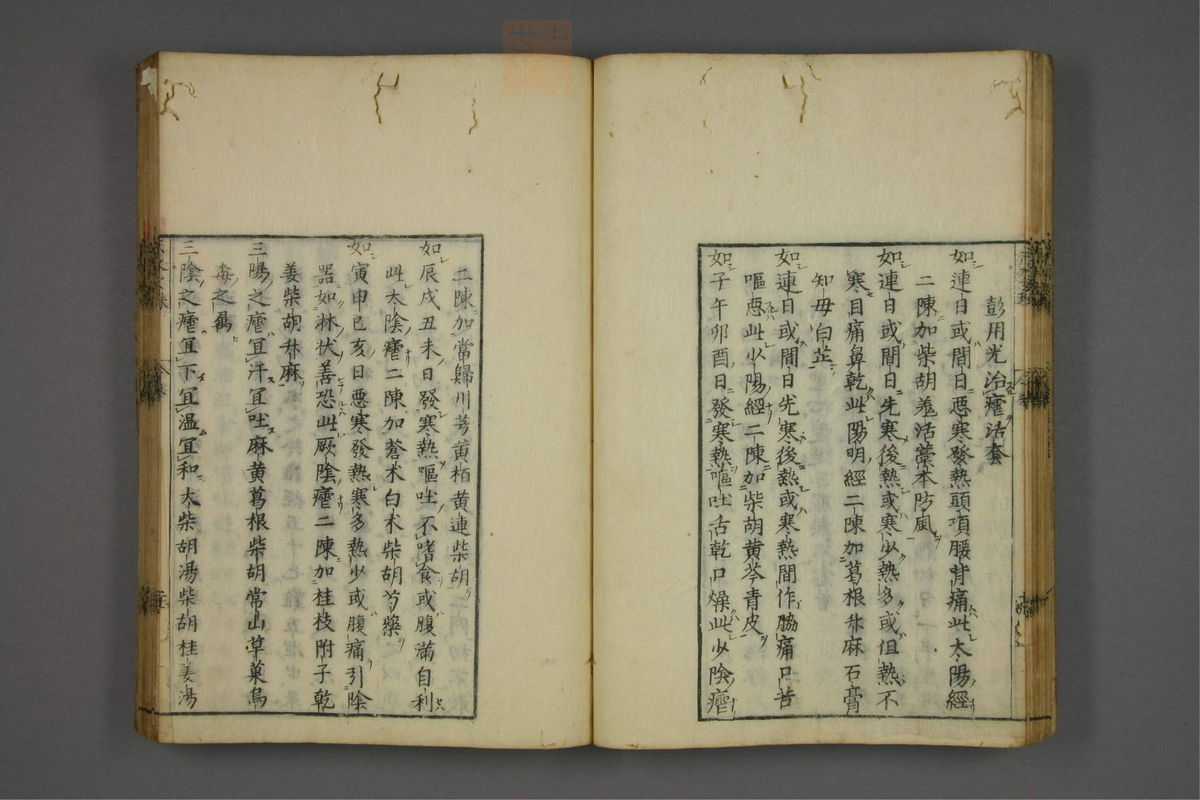 彭用光治瘧活套
如連日或間日惡寒發熱頭項腰背痛此太陽經
二陳加柴胡羗活藁本防風
如連日或間日先寒後熱或寒少熱多或但熱不
寒目痛鼻乾此陽明經二陳加葛根升麻石膏
知母白芷
如連日或間日先寒後熱或寒熱間作脇痛口苦
嘔惡此少陽經二陳加柴胡黄芩青皮
如子午卯酉日發寒熱嘔吐舌乾口燥此少陰瘧
二陳加當歸川芎黄栢黄連柴胡
如辰戌丑未日發寒熱嘔吐不嗜食或腹滿自利
此太陰瘧二陳加蒼术白术柴胡芍藥
如寅申巳亥日惡寒發熱寒多熱少或腹痛引陰
器如淋状善恐此厥陰瘧二陳加桂枝附子乾
姜柴胡升麻
三陽之瘧宜汗宜吐麻黄葛根柴胡常山草菓烏
毒之屬
三陰之瘧宜下宜温宜和大柴胡湯柴胡桂姜湯